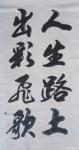 人生路上
出彩飞歌